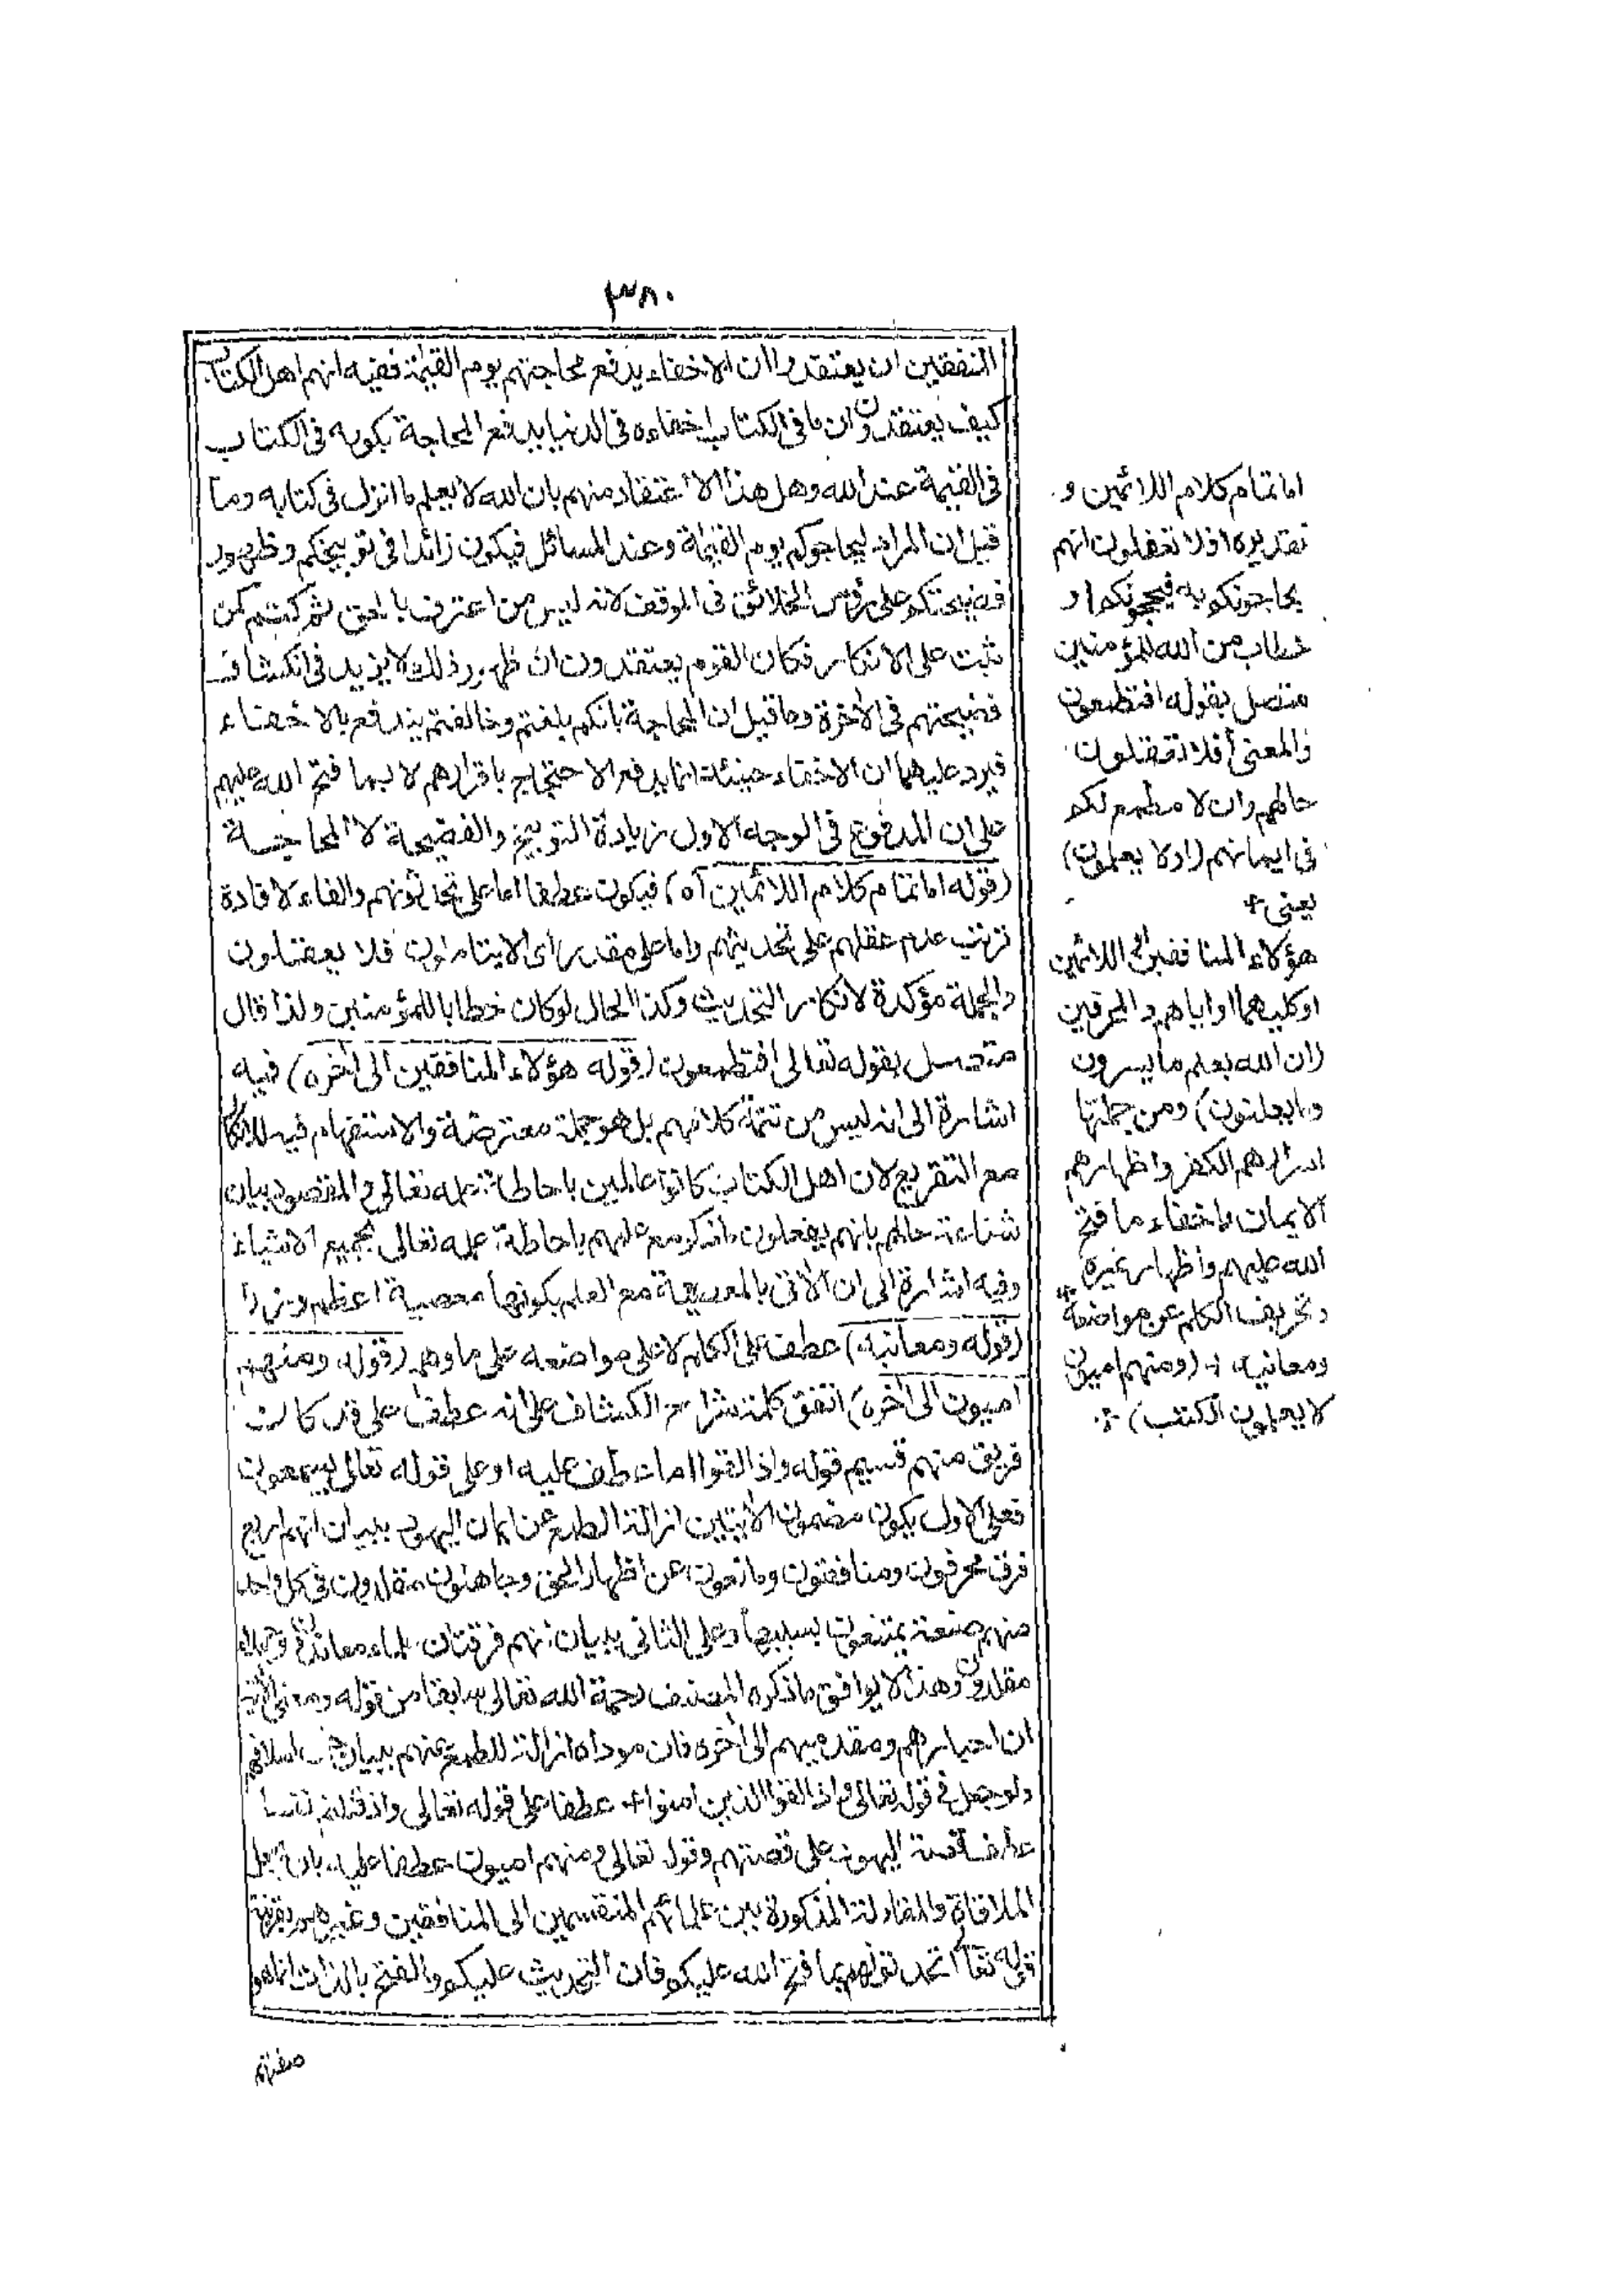 ٣٨٠
المنفقين ان يعتقدوا ان الاخفاء يدفع محاجتهم يوم القيمة ففيه انهم اهل الكتاب
كيف يعتقدون ان ما فى الكتاب اخفاءه فى الدنيا يدفع المحاجة بكونه فى الكتاب
فى القيمة عند الله وهل هذا الا اعتقاد منهم بان الله لا يعلم ما انزل فى كتابه وما
قيل ان المراد ليحاجوكم يوم القيمة وعند المسائل فيكون زائدا فى توبيخكم وظهور
فضيحتكم على رؤس الخلائق فى الموقف لانه ليس من اعترف بالحق ثم كتم كمن
ثبت على الانكار فكان القوم يعتقدون ان ظهور ذلك لا يزيد فى انكشاف
فضيحتهم فى الاخرة وما قيل ان المحاجة بانكم بلغتم وخالفتم يندفع بالاخفاء
فيرد عليهما ان الاخفاء حينئذ انما يدفع الاحتجاج باقرارهم لا بما فتح الله عليهم
على ان المدفوع فى الوجه الاول زيادة التوبيخ والفضيحة لا المحاجة
(قوله اما تمام كلام اللائمين آه) فيكون عطفا اما على تحدثونهم والفاء لافادة
ترتب عدم عقلهم على تحديثهم واما على مقدر اى الا يتاملون فلا يعقلون
والجملة مؤكدة لانكار التحديث وكذا الحال لو كان خطابا للمؤمنين ولذا قال
متصل بقوله تعالى افتطمعون (قوله هؤلاء المنافقين الى اخره) فيه
اشارة الى انه ليس من تتمة كلامهم بل هو جملة معترضة والاستفهام فيه للانكار
مع التقريع لان اهل الكتاب كانوا عالمين باحاطة علمه تعالى والمقصود بيان
شناعة حالهم بانهم يفعلون ما ذكر مع علمهم باحاطة علمه تعالى بجميع الاشياء
وفيه اشارة الى ان الاتى بالمعصية مع العلم بكونها معصية اعظم وزرا
(قوله ومعانيه) عطف على الكلم لا على مواضعه على ما وهم (قوله ومنهم
اميون الى اخره) اتفق كلمة شراح الكشاف على انه عطف على قد كان
فريق منهم قسيم قوله واذا لقوا اما عطف عليه او على قوله تعالى يسمعون
فعلى الاول يكون مضمون الآيتين ازالة الطمع عن ايمان اليهود ببيان انهم اربع
فرق محرفون ومنافقون ومانعون عن اظهار الحق وجاهلون مقلدون فى كل واحد
منهم صنعة يمتنعون بسببها وعلى الثانى ببيان انهم فرقتان علماء معاندون وجهلاء
مقلدون وهذا لا يوافق ما ذكره المصنف رحمة الله تعالى سابقا من قوله ومعنى الآية
ان احبارهم ومقدميهم الى اخره فان موداه ازالة الطمع عنهم ببيان اسلافهم
ولو جعل قوله تعالى واذا لقوا الذين امنوا عطفا على قوله تعالى واذ قتلتم نفسا
عطف قصة اليهود على قصتهم وقوله تعالى ومنهم اميون عطفا عليه بان يجعل
الملاقاة والمقاولة المذكورة بين علمائهم المنقسمين الى المنافقين وغيرهم بقرينة
قوله تعا اتحدثونهم بما فتح الله عليكم فان التحديث عليكم والفتح بالذات انما هو
صفتهم
اما تمام كلام اللائمين و
تقديره افلا تعقلون انهم
يحاجونكم به فيحجونكم او
خطاب من الله للمؤمنين
متصل بقوله افتطمعون
والمعنى أفلا تعقلون
حالهم وان لا مطمع لكم
فى ايمانهم (اولا يعلمون)
يعنى
هؤلاء المنافقين او اللائمين
او كليهما او اياهم والمحرفين
(ان الله يعلم ما يسرون
وما يعلنون) ومن جملتها
اسرارهم الكفر واظهارهم
الايمان واخفاء ما فتح
الله عليهم واظهار غيره
وتحريف الكلم عن مواضعه
ومعانيه (ومنهم اميون
لا يعلمون الكتب)